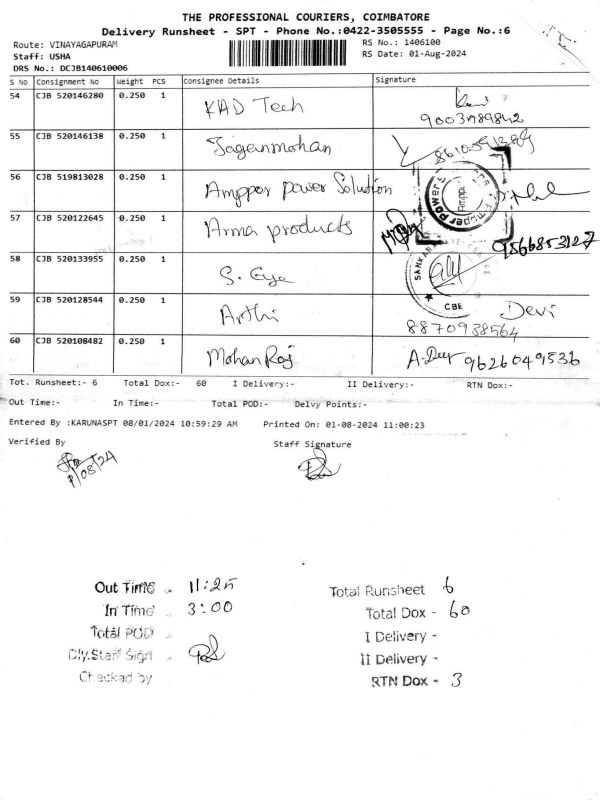 THE PROFESSIONAL COURIERS, COIMBATORE
Delivery Runsheet - SPT - Phone No.:0422-3505555 - Page No.:6
Route: VINAYAGAPURAM
Staff: USHA
DRS No.: DCJB140610006
RS No.: 1406100
RS Date: 01-Aug-2024
S No Consignment No Weight PCS Consignee Details Signature
54 CJB 520146280 0.250 1 KAD Tech
9003989842
55 CJB 520146138 0.250 1 Jaganmohan
56 CJB 519813028 0.250 1 Amppor power Solution
57 CJB 520122645 0.250 1 Arma products
9566853127
58 CJB 520133955 0.250 1 S. Eye
SANKARA EYE CBE
59 CJB 520128544 0.250 1 Arthi Devi
8870938564
60 CJB 520108482 0.250 1 Mohan Raj 9626049536
Tot. Runsheet:- 6 Total Dox:- 60 I Delivery:- II Delivery:- RTN Dox:-
Out Time:- In Time:- Total POD:- Delvy Points:-
Entered By :KARUNASPT 08/01/2024 10:59:29 AM Printed On: 01-08-2024 11:00:23
Verified By Staff Signature
Out Time - 11:25
In Time - 3:00
Total POD -
Dly.Staff Sign -
Checked by
Total Runsheet 6
Total Dox - 60
I Delivery -
II Delivery -
RTN Dox - 3